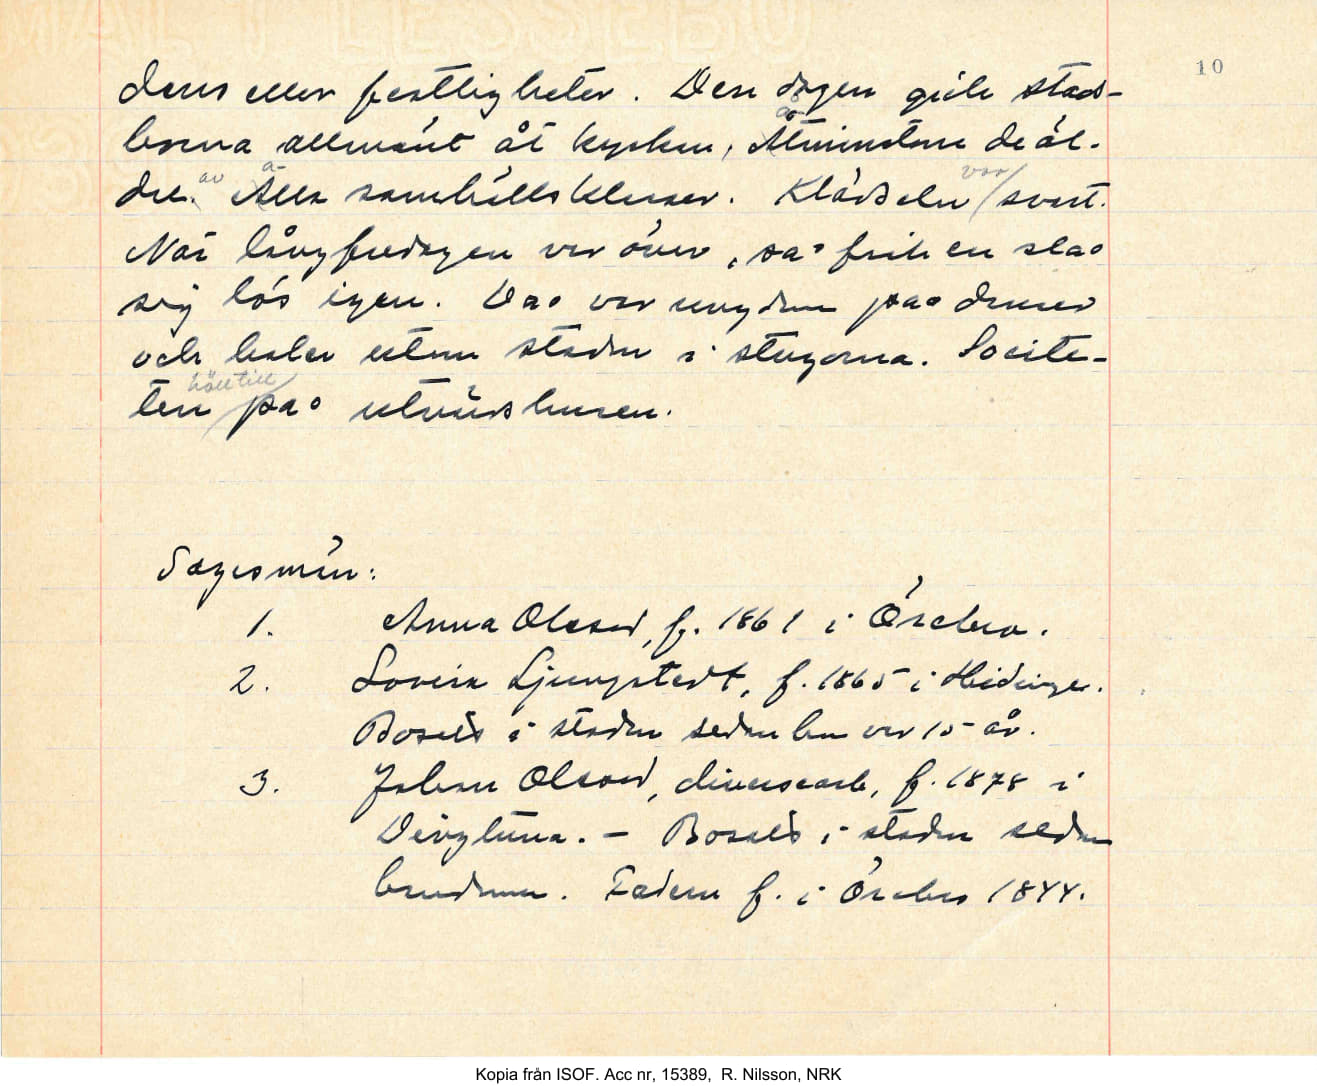 10
dans eller festligheter. Den dagen gick stads-
borna allmänt åt kyrkan, åtminstone de äl-
dre av alla samhällsklasser. Klädseln var svart.
När långfredagen var över, så fick en slå
sig lös igen. Då var ungdom på danser
och baler utom staden i stugorna. Socite-
ten höll till på utvärdshusen.
Sagesmän:
1. Anna Olsson, f. 1861 i Örebro.
2. Lovisa Ljungstedt, f. 1865 i Hidinge.
Bosatt i staden sedan hon var 15 år.
3. Johan Olsson, diversearb, f. 1878 i
Vingåker. – Bosatt i staden sedan
barndomen. Fadern f. i Örebro 1844.
Kopia från ISOF. Acc nr, 15389, R. Nilsson, NRK